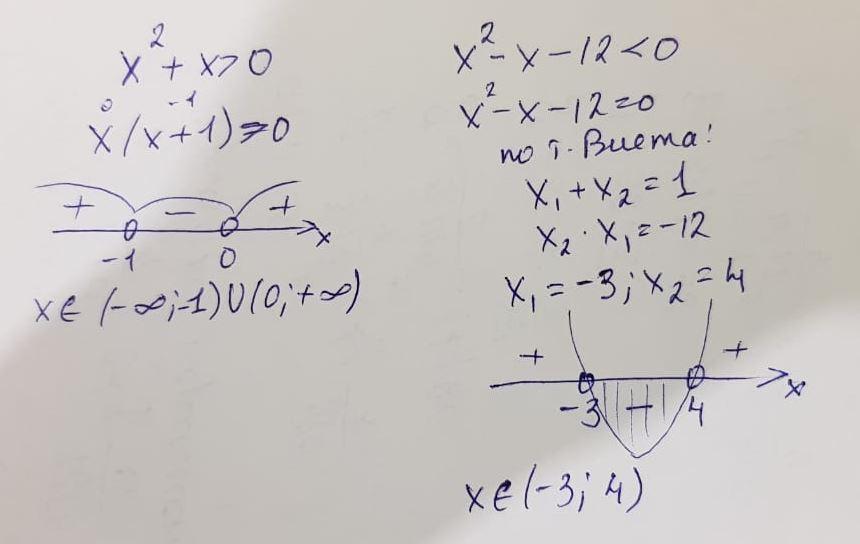 x² + x > 0
0 -1
x(x+1) > 0
+ − +
-1 0 x
x ∈ (-∞;-1)∪(0;+∞)
x² - x - 12 < 0
x² - x - 12 = 0
по т. Виета:
x₁ + x₂ = 1
x₂ · x₁ = -12
x₁ = -3; x₂ = 4
+ − +
-3 4 x
x ∈ (-3; 4)